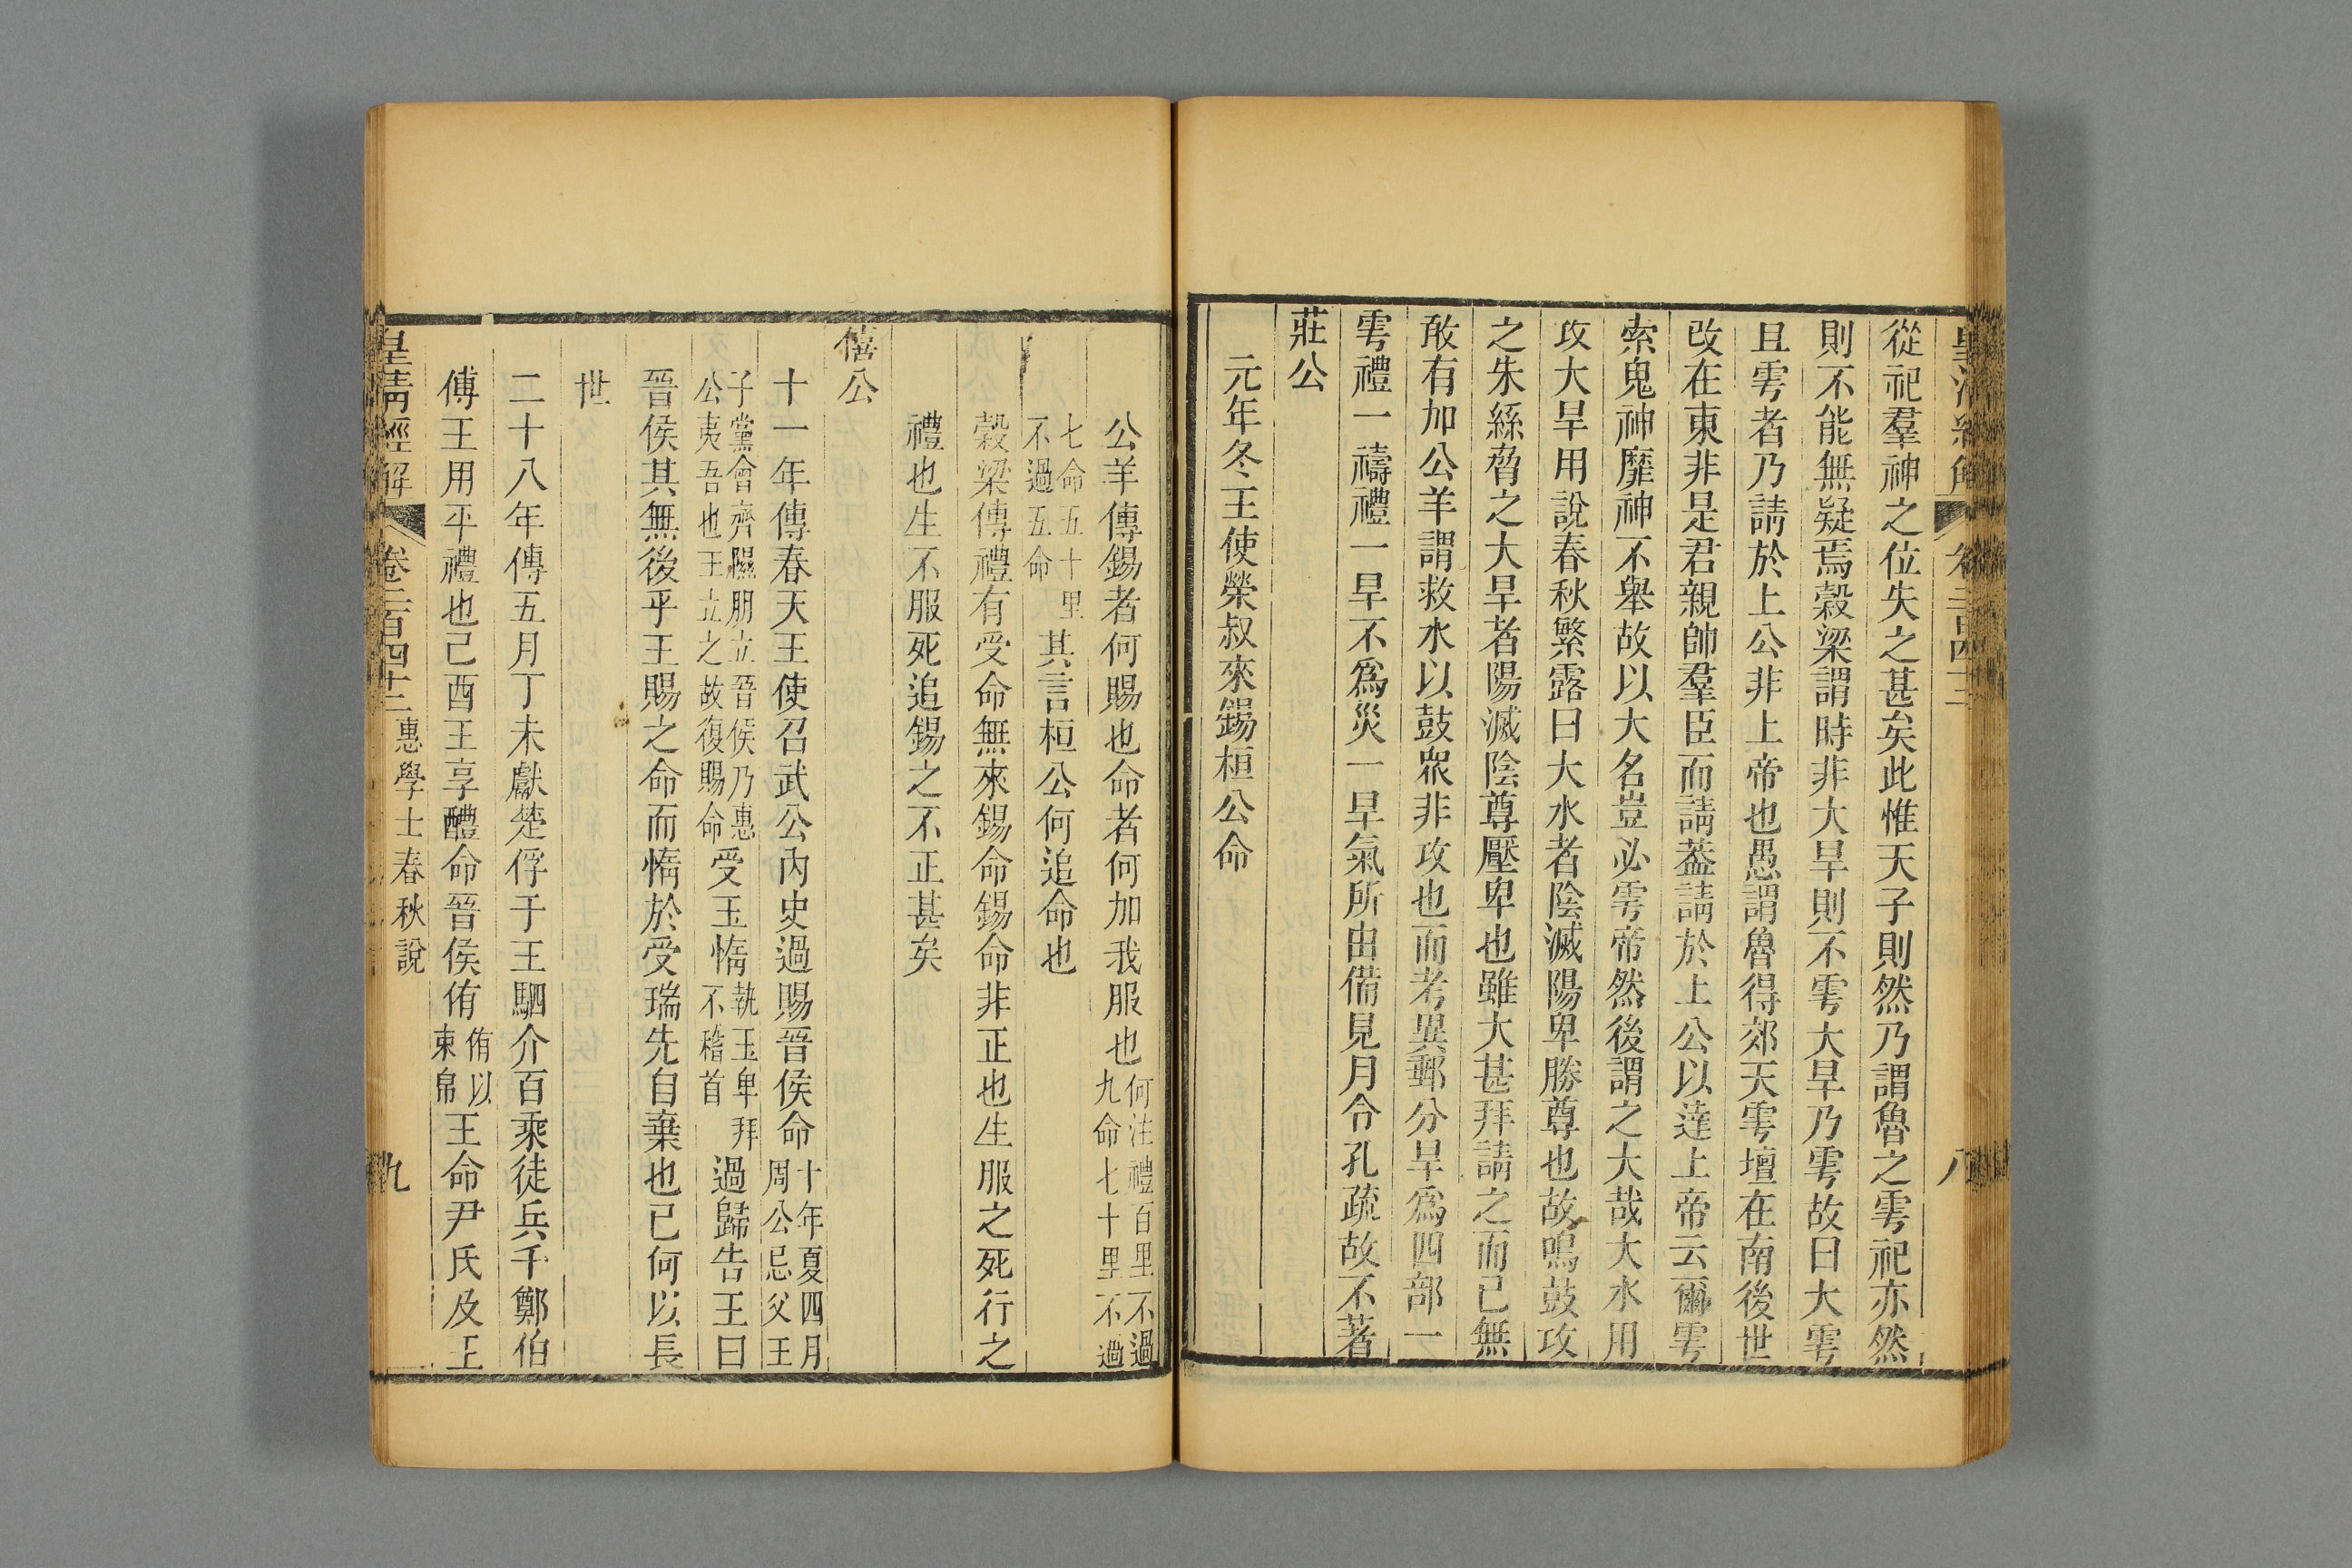 皇清經解 卷二百四十三 八
從祀羣神之位失之甚矣此惟天子則然乃謂魯之雩祀亦然
則不能無疑焉穀梁謂時非大旱則不雩大旱乃雩故曰大雩
且雩者乃請於上公非上帝也愚謂魯得郊天雩壇在南後世
改在東非是君親帥羣臣而請葢請於上公以達上帝云爾雩
索鬼神靡神不舉故以大名豈必雩帝然後謂之大哉大水用
攻大旱用說春秋繁露曰大水者陰滅陽卑勝尊也故鳴鼓攻
之朱絲脅之大旱者陽滅陰尊壓卑也雖大甚拜請之而已無
敢有加公羊謂救水以鼓衆非攻也而考異郵分旱爲四部一
雩禮一禱禮一旱不爲災一旱氣所由備見月令孔疏故不著
莊公
元年冬王使榮叔來錫桓公命
公羊傳錫者何賜也命者何加我服也何注禮百里不過九命七十里不過
七命五十里不過五命其言桓公何追命也
穀梁傳禮有受命無來錫命錫命非正也生服之死行之
禮也生不服死追錫之不正甚矣
僖公
十一年傳春天王使召武公內史過賜晉侯命十年夏四月周公忌父王
子黨會齊隰朋立晉侯乃惠公夷吾也王立之故復賜命受玉惰執玉卑拜不稽首過歸告王曰
晉侯其無後乎王賜之命而惰於受瑞先自棄也已何以長
世
二十八年傳五月丁未獻楚俘于王駟介百乘徒兵千鄭伯
傅王用平禮也己酉王享醴命晉侯侑侑以束帛王命尹氏及王
皇清經解 卷二百四十三 惠學士春秋說 九